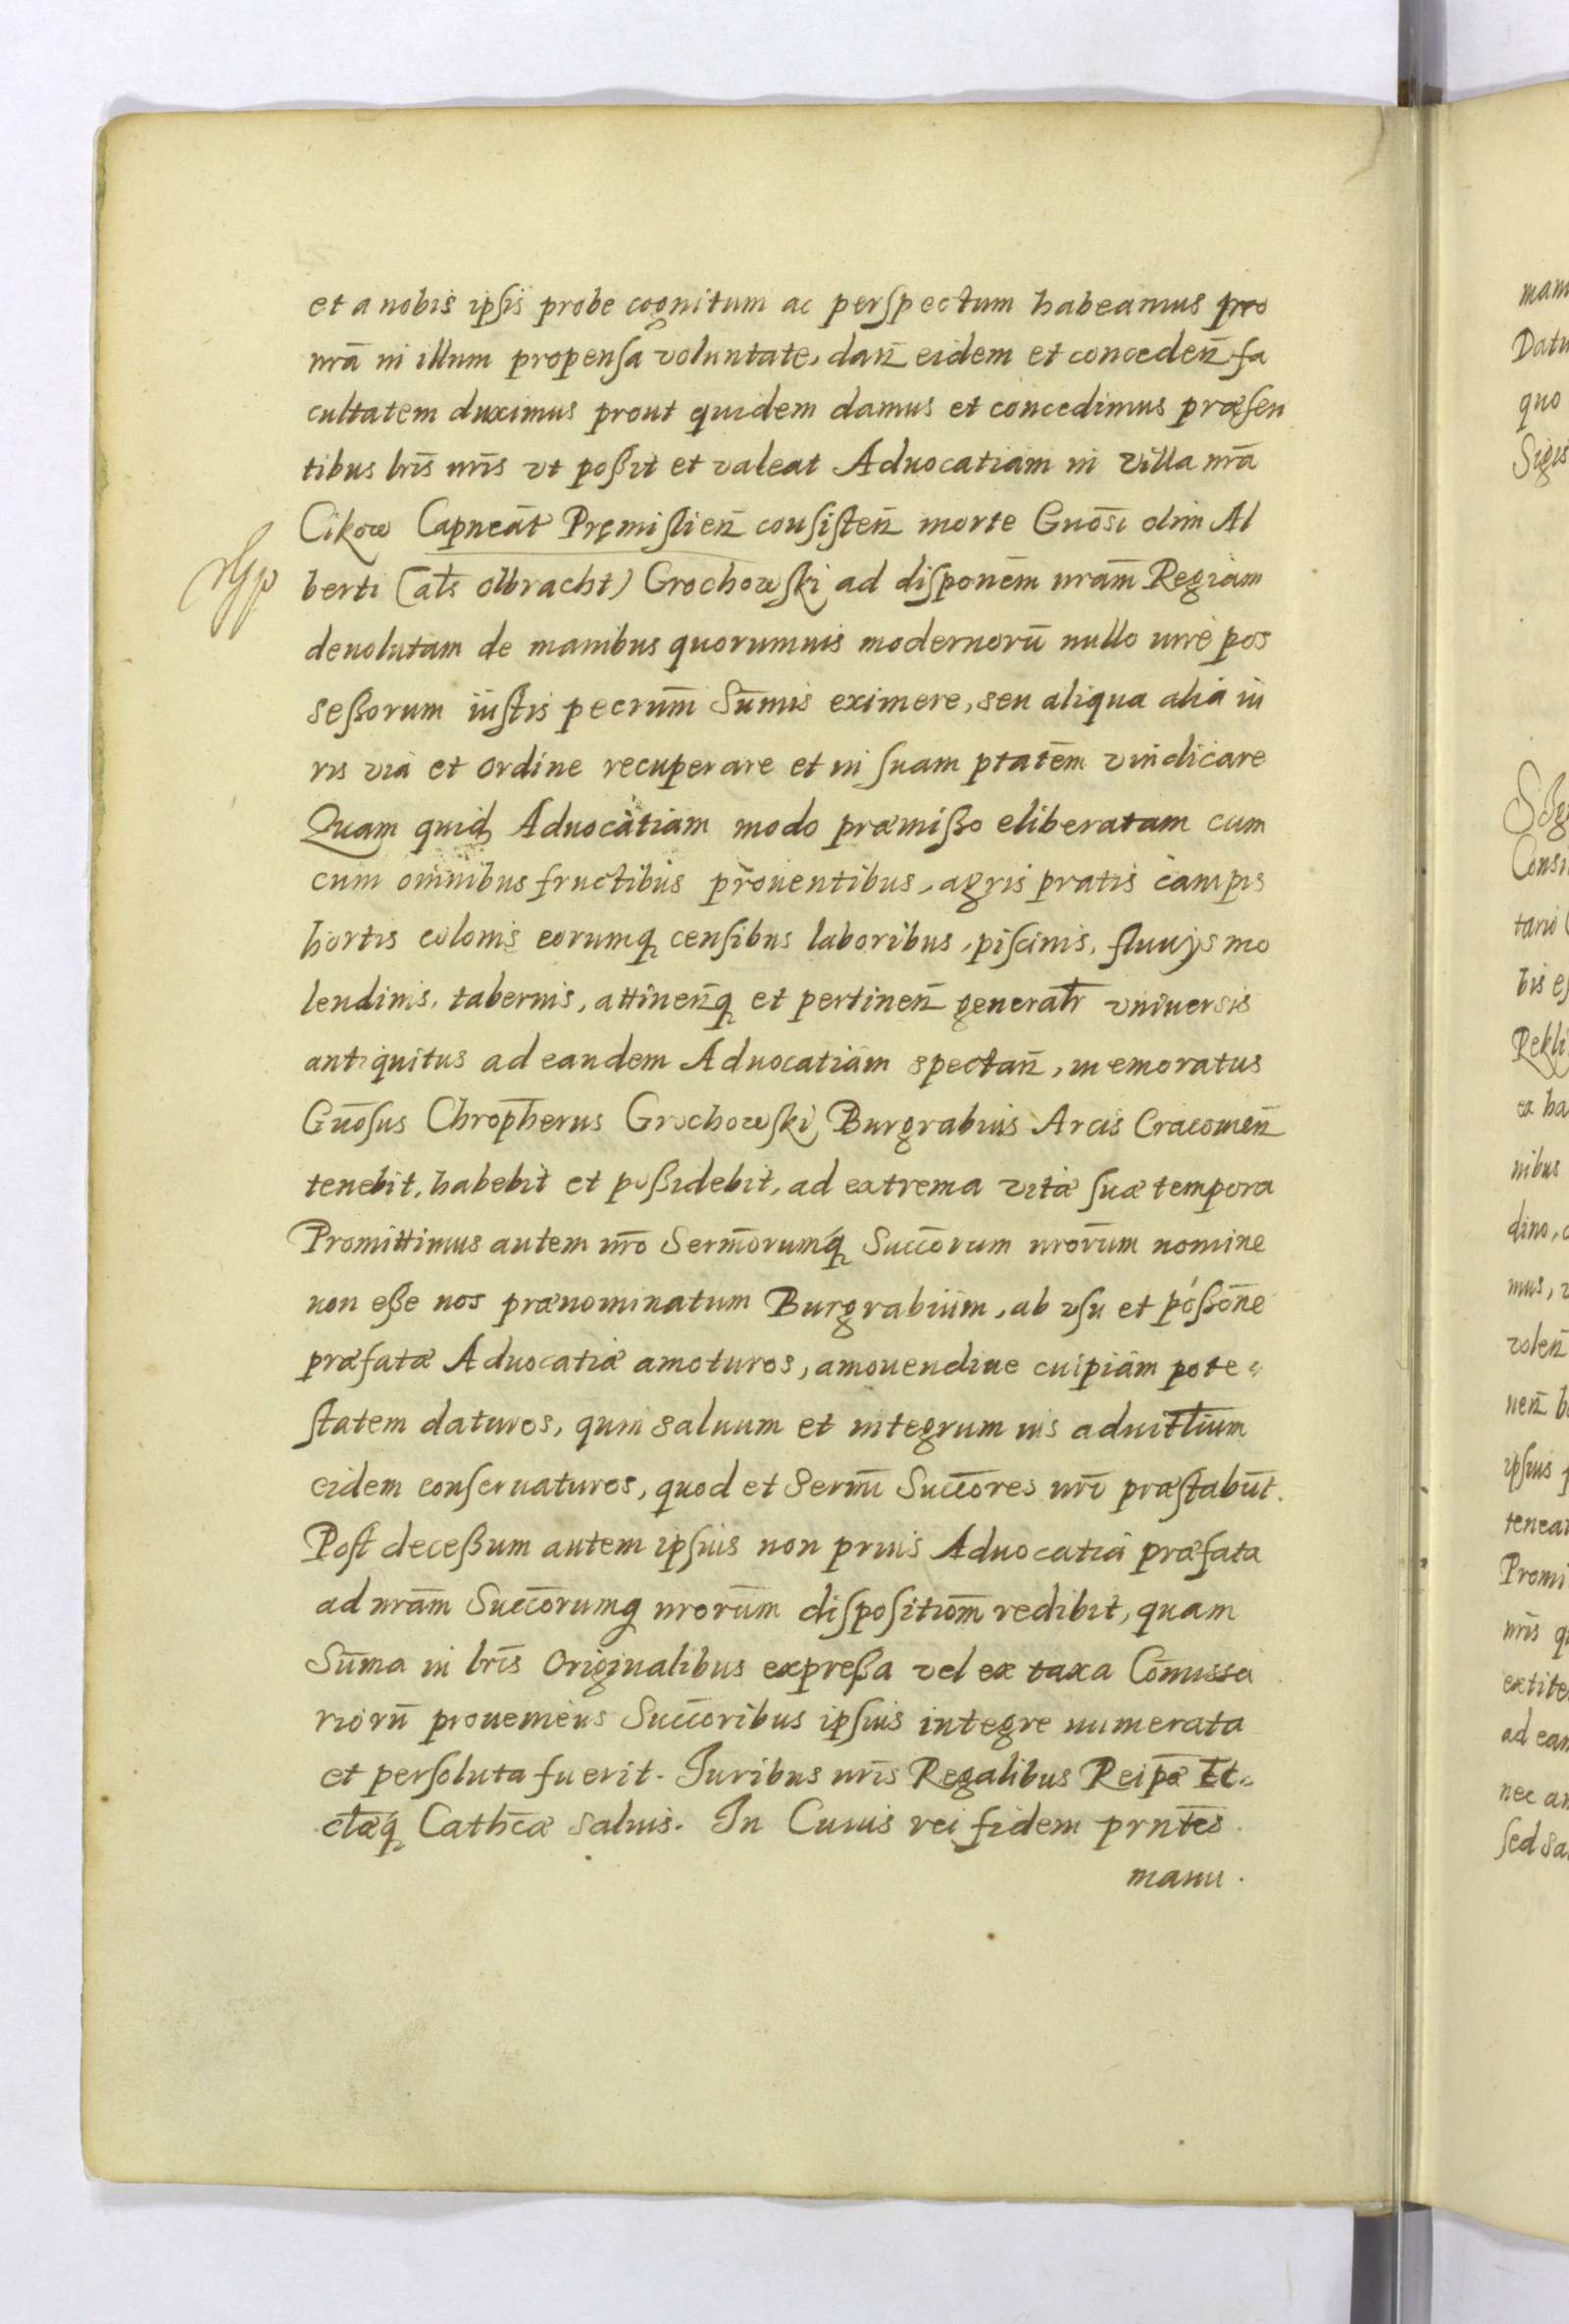 et a nobis ipſis probe cognitum ac perſpectum habeamus pro
nrā in illum propenſa voluntate, dan̄ eidem et conceden̄ fa
cultatem duximus prout quidem damus et concedimus præſen
tibus lrīs nrīs vt poßit et valeat Aduocatiam in villa nrā
Cikow Capneāt Pręmiſlien̄ conſiſten̄ morte Gnōsi olim Al
berti (als̄ olbracht) Grochowſki ad diſponēm nrām Regiam
deuolutam de manibus quorumuis modernorū nullo iure pos
seßorum iuſtis pecrūm Sūmis eximere, seu aliqua alia iu
ris via et ordine recuperare et in ſuam ptatēm vindicare
Quam quid Aduocatiam modo præmißo eliberatam cum
cum omnibus fructibus prouentibus, agris pratis campis
hortis colonis eorumq censibus laboribus, piſcinis, fluuijs mo
lendinis, tabernis, attinen̄q et pertinen̄ generatr̄ vniuersis
antiquitus ad eandem Aduocatiam spectan̄, memoratus
Gnōſus Chrop̄herus Grochowſki Burgrabius Arcis Cracouien̄
tenebit, habebit et poßidebit, ad extrema vitæ ſuæ tempora
Promittimus autem nrō Serm̄orumq Succ̄orum nrōrum nomine
non eße nos prænominatum Burgrabium, ab vſu et poßōne
præfatæ Aduocatiæ amoturos, amouendiue cuipiam pote=
ſtatem daturos, quin saluum et integrum ius aduitl̄ium
eidem conſeruaturos, quod et Sermī Succ̄ores nrī præſtabūt.
Poſt deceßum autem ipſius non prius Aduocatia præfata
ad nrām Succ̄orumq nrorūm diſpoſitiom̄ redibit, quam
Sūma in lrīs Originalibus expreßa vel ex taxa Cōmissa
riorū proueniens Succ̄oribus ipſius integre numerata
et perſoluta fuerit. Iuribus nrīs Regalibus Reipǣ Ec=
clæq̄ Cathc̄æ saluis. In Cuius rei fidem prn̄tes
manu.
mam
Datu
quo
Sigis
Consi
tario
bis e
Rekli
ea ha
nibus
dino,
mus, v
volen̄
nen̄ b
ipſius
tenea
Promi
nrīs q
extite
ad ean
nec an
ſed sa